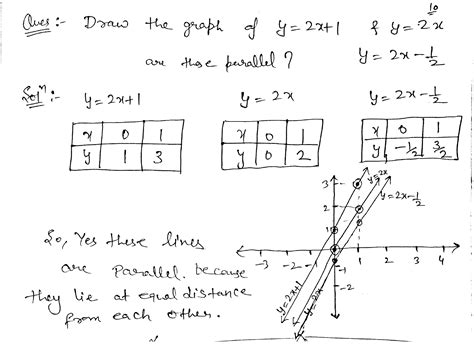 10
Ques :- Draw the graph of y = 2x+1 & y = 2x
are these parallel ? y = 2x - 1/2
Solⁿ :- y = 2x+1 y = 2x y = 2x - 1/2
x 0 1 x 0 1 x 0 1
y 1 3 y 0 2 y -1/2 3/2
3 y=2x
2 y=2x-1/2
1
So, Yes these lines
-3 -2 -1 1 2 3 4
are Parallel. because -1
they lie at equal distance -2
from each other. y=2x+1 y=2x y=2x-1/2